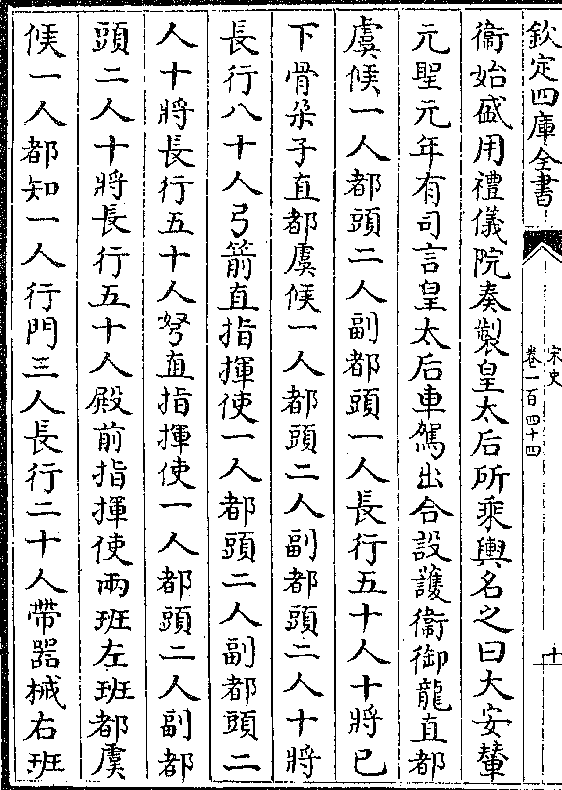 欽定四庫全書
宋史
卷一百四十四
十
衞始盛用禮儀院奏製皇太后所乘輿名之曰大安輦
元聖元年有司言皇太后車駕出合設護衞御龍直都
虞候一人都頭二人副都頭一人長行五十人十將已
下骨朶子直都虞候一人都頭二人副都頭二人十將
長行八十人弓箭直指揮使一人都頭二人副都頭二
人十將長行五十人弩直指揮使一人都頭二人副都
頭二人十將長行五十人殿前指揮使兩班左班都虞
候一人都知一人行門三人長行二十人帶器械右班